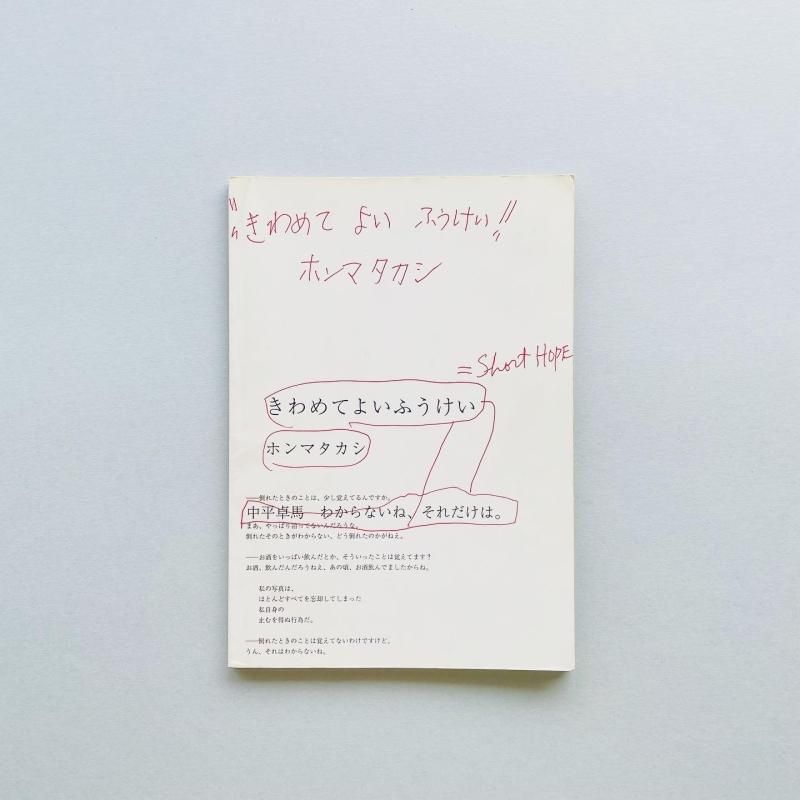 "きわめて よい ふうけい!!"
ホンマタカシ
= Short HOPE
きわめてよいふうけい
ホンマタカシ
──倒れたときのことは、少し覚えてるんですか。
中平卓馬　わからないね、それだけは。
まあ、やっぱり治ってないんだろうな。
倒れたそのときがわからない、どう倒れたのかがねえ。
──お酒をいっぱい飲んだとか、そういったことは覚えてます？
お酒、飲んだんだろうねえ、あの頃、お酒飲んでましたからね。
私の写真は、
ほとんどすべてを忘却してしまった
私自身の
止むを得ぬ行為だ。
──倒れたときのことは覚えてないわけですけど。
うん、それはわからないね。